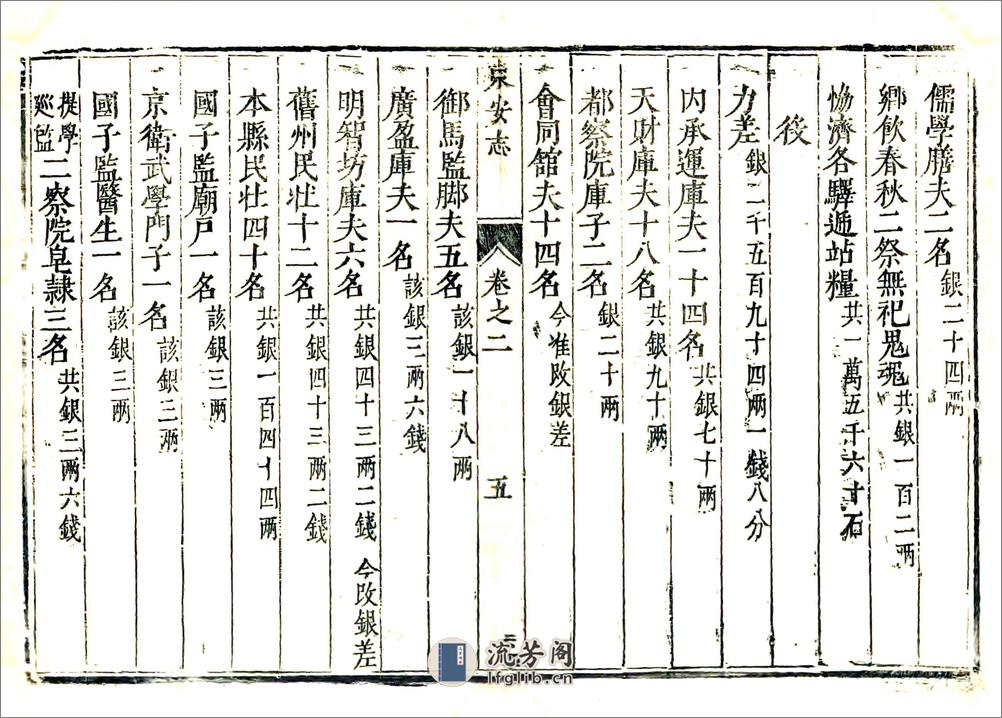 儒學膳夫二名銀二十四兩
鄉飲春秋二祭無祀鬼魂共銀一百二兩
協濟各驛遞站糧共一萬五千六十石
後
力差銀二千五百九十四兩一錢八分
内承運庫夫一十四名共銀七十兩
天財庫夫十八名共銀九十兩
都察院庫子二名該銀二十兩
會同舘夫十四名今准改銀差
東安志 卷之二 五
御馬監脚夫五名該銀一十八兩
廣盈庫夫一名該銀三兩六錢
明智坊庫夫六名共銀四十三兩二錢 今改銀差
舊州民壮十二名共銀四十三兩二錢
本縣民壮四十名共銀一百四十四兩
國子監廟户一名該銀三兩
京衛武學門子一名該銀三兩
國子監醫生一名該銀三兩
提學巡監二察院皂隷三名共銀三兩六錢
流芳阁
lfglib.cn